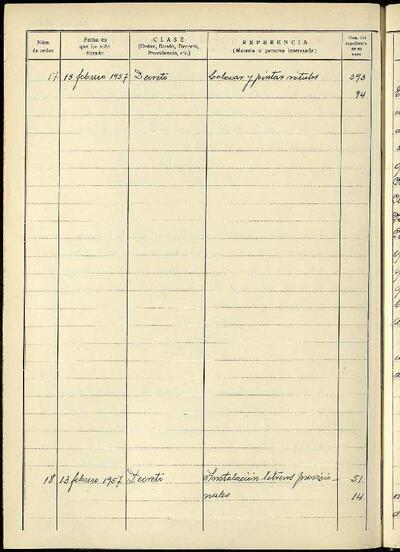 Núm. de orden
Fecha en que ha sido firmado
CLASE
(Orden, Bando, Decreto, Providencia, etc.)
REFERENCIA
(Materia o persona interesada)
Núm. del expediente en su caso
17 13 febrero 1957 Decreto Colocar y pintar rótulos 393
94
18 13 febrero 1957 Decreto Instalación letreros provisio- 51
nales 14